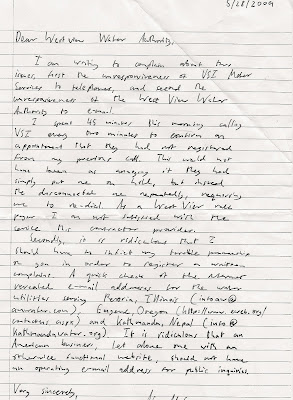 5/28/2009
Dear West View Water Authority,
I am writing to complain about two
issues, first the unresponsiveness of VSI Meter
Services to telephones, and second the
unresponsiveness of the West View Water
Authority to e-mail.
I spent 45 minutes this morning calling
VSI every two minutes to confirm an
appointment that they had not registered
from my previous call. This would not
have been as annoying if they had
simply put me on hold, but instead
he disconnected me repeatedly, requiring
me to redial. As a West View rate
payer I am not satisfied with the
service this contractor provides.
Secondly, it is ridiculous that I
should have to inflict my terrible penmanship
on you in order to register a written
complaint. A quick check of the internet
revealed e-mail addresses for the water
utilities serving Peoria, Illinois (infoaw@
amwater.com), Eugene, Oregon (http://www.eweb.org/
contactus.aspx) and Kathmandu, Nepal (info@
kathmanduwater.org). It is ridiculous that an
American business, let alone one with an
otherwise functional website, should not have
an operating e-mail address for public inquiries.
Very sincerely,